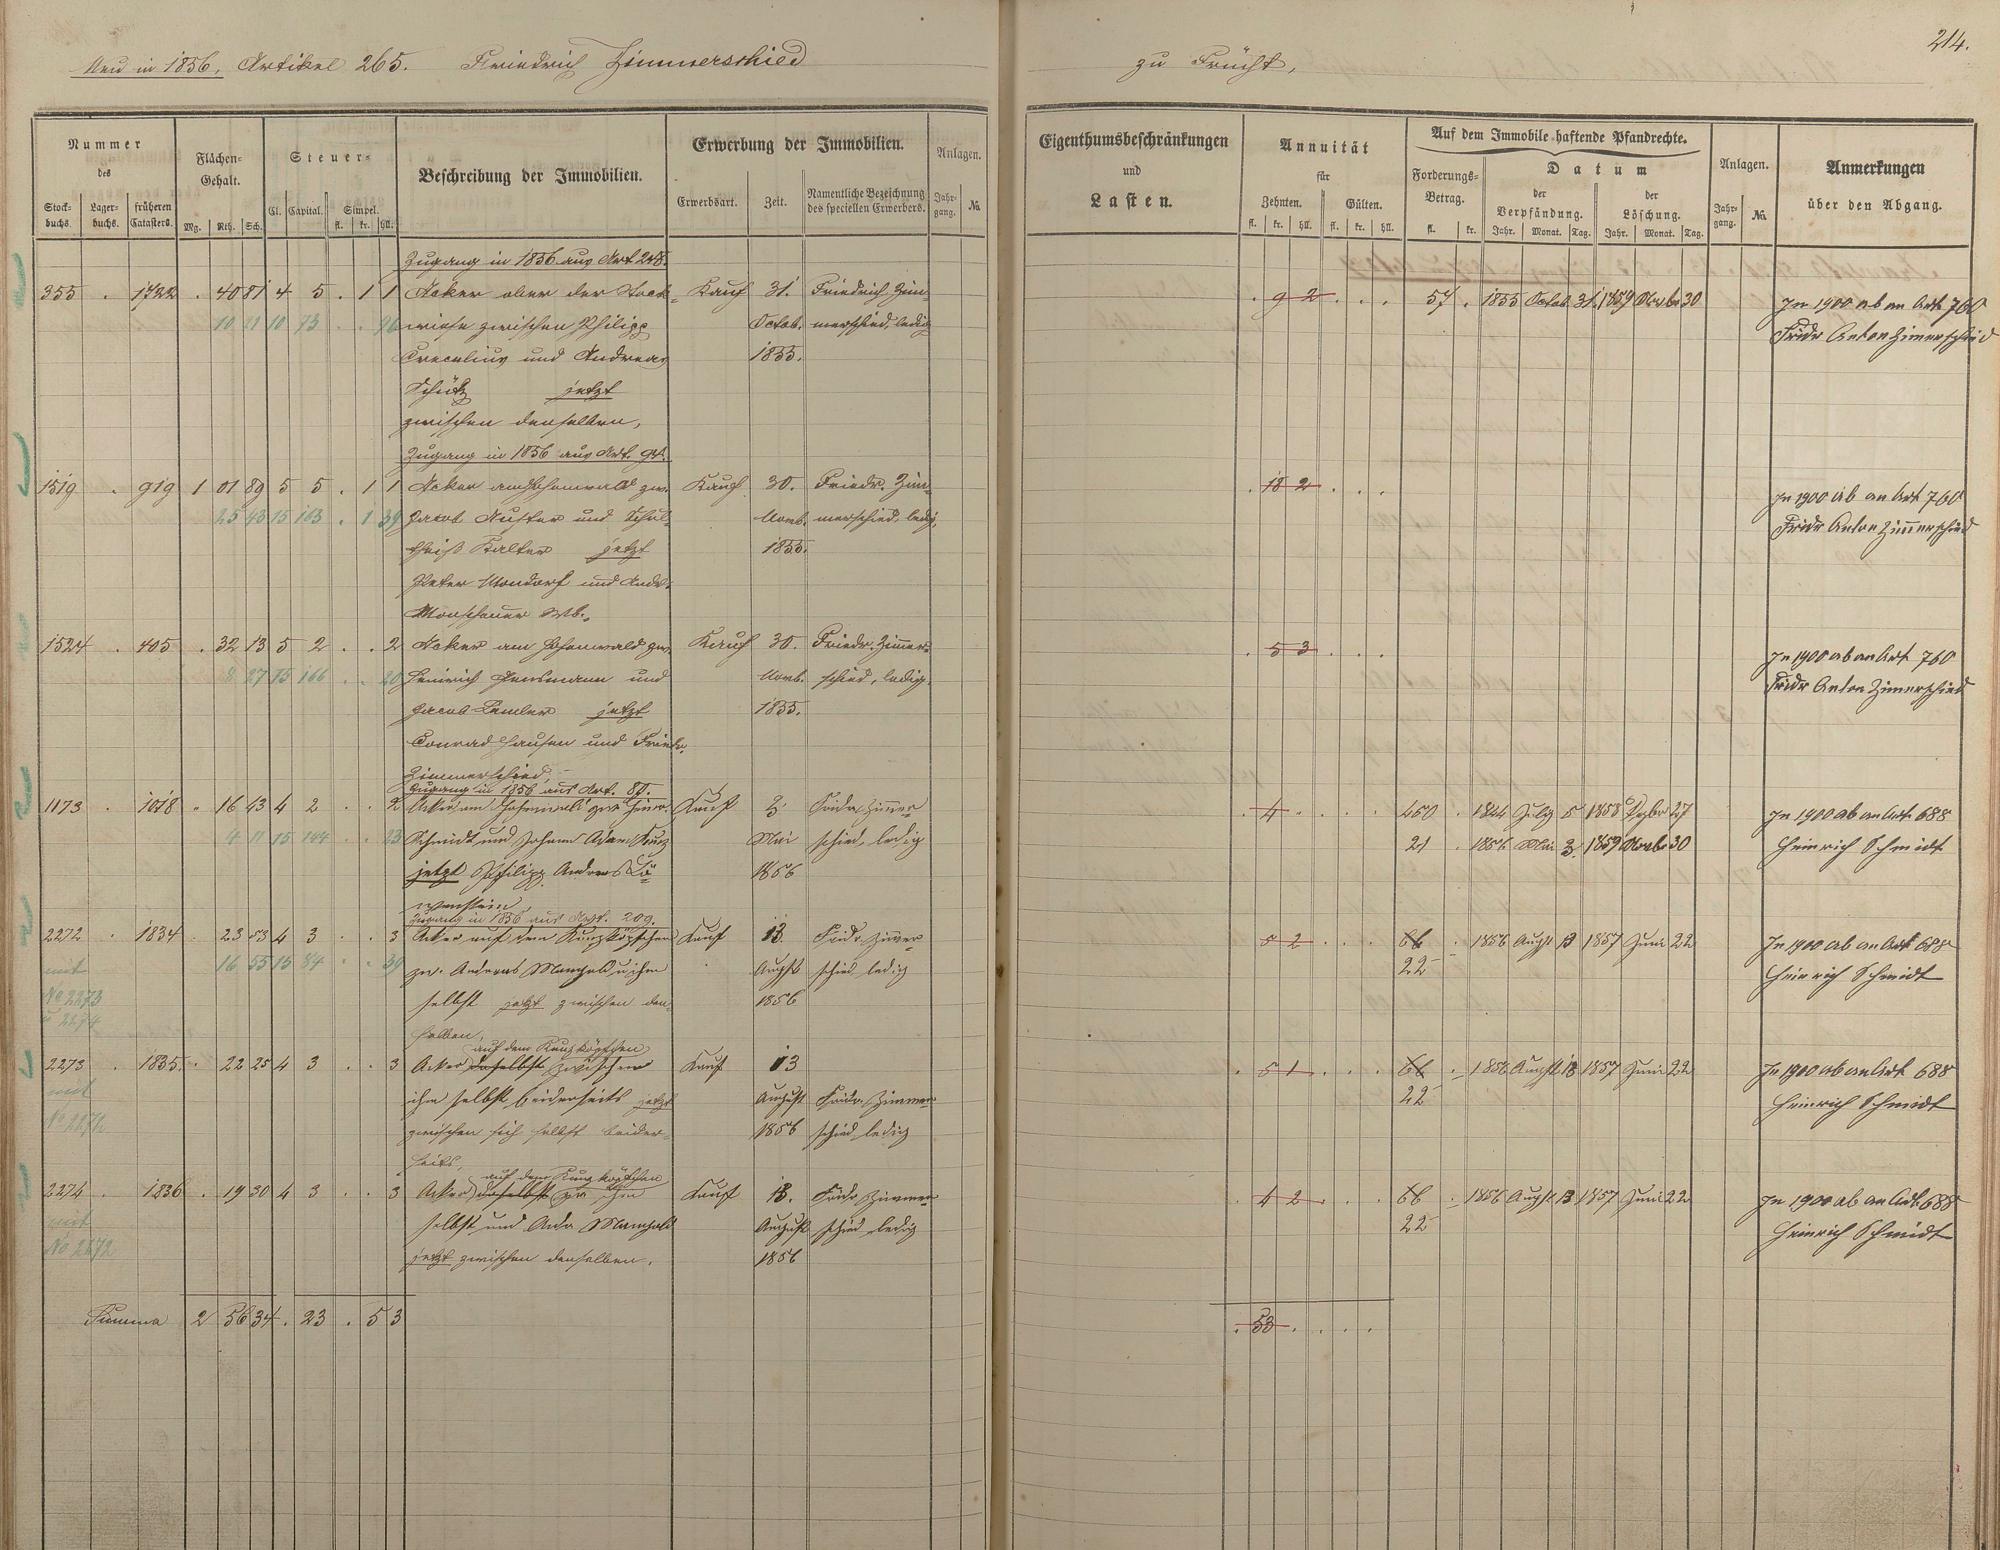 214.
Neu in 1856. Artikel 265. Friedrich Zimmerschied zu Frücht,
Nummer des
Stock-buchs. Lager-buchs. früheren Catasters.
Flächen-Gehalt.
Mg. Rth. Sch.
Steuer-
Cl. Capital. Simpel.
fl. kr. hll.
Beschreibung der Immobilien.
Erwerbung der Immobilien.
Erwerbsart. Zeit. Namentliche Bezeichnung des speciellen Erwerbers.
Anlagen.
Jahr-gang. No.
Eigenthumsbeschränkungen
und
Lasten.
Annuität
für
Zehnten. Gülten.
fl. kr. hll. fl. kr. hll.
Auf dem Immobile haftende Pfandrechte.
Forderungs-Betrag.
fl. kr.
Datum
der Verpfändung. der Löschung.
Jahr. Monat. Tag. Jahr. Monat. Tag.
Anlagen.
Jahr-gang. No.
Anmerkungen
über den Abgang.
Zugang in 1856 aus Art 248.
355 . 1722 . 40 81 4 5 . 1 1 Acker ober der Stock- Kauf 31. Friedrich Zim- . 9 2 . . . 57 . 1855 Octob. 31. 1859 Novbr 30 In 1900 ab an Art 760
10 21 10 73 . . 96 wiese zwischen Philipp Octob. merschied, ledig Fridr Anton Zimerschied
Crecelius und Andreas 1855.
Schütz jetzt
zwischen denselben,
Zugang in 1856 aus Art. 94.
1519 . 919 1 01 89 5 5 . 1 1 Acker am Hohenwald zw. Kauf 30. Friedr. Zim- . 18 2 . . . In 1900 ab an Art 760
25 43 15 163 . 1 39 Jacob Auster und Schul- Novb. merschied, ledig, Fridr Anton Zimmerschied
theiß Kalter jetzt 1855.
Peter Mondorf und Andr.
Monschauer Wb.,
1524 . 405 . 32 13 5 2 . . 2 Acker am Hohenwald zw. Kauf 30. Friedr. Zimmer- . 5 3 . . . In 1900 ab an Art 760
8 27 15 166 . . 20 Heinrich und Novb. schied, ledig. Fridr Anton Zimerschied
Jacob Lemler jetzt 1855.
Conrad Hausen und Friedr.
Zimmerschied,
Zugang in 1856 aus Art. 87.
1173 . 1018 . 16 43 4 2 . . 2 Acker am Hohenwald zw. Heinr. Kauf 3. Fridr. Zimer- . 4 . . . . 450 . 1844 July 5 1858 27 In 1900 ab an Art 688
4 11 15 144 . . 23 Schmidt und Johann Adam Kunz Mai schied, ledig 21 . 1856 Mai 3. 1859 Novbr 30 Heinrich Schmidt
jetzt Philipp Andreas Lö- 1856
wenstein
Zugang in 1856 aus Art. 209.
2272 . 1834 . 23 53 4 3 . . 3 Acker auf dem Kunzköpfchen Kauf 13. Fridr Zimer- 5 2 . . . 66 . 1856 Augst 13 1857 Juni 22 In 1900 ab an Art 688
mit 16 55 15 84 . . 39 zw. Andreas Mangold u ihm Augst schied ledig 22 Heinrich Schmidt
No 2273 selbst jetzt zwischen den- 1856
u 2274 selben,
auf dem Kunzköpfchen
2273 . 1835 . 22 25 4 3 . . 3 Acker daselbst zwischen Kauf 13 . 5 1 . . . 66 . 1856 Augst 13 1857 Juni 22 In 1900 ab an Art 688
mit ihm selbst beiderseits jetzt August Fridr. Zimmer- 22 Heinrich Schmidt
No 2272 zwischen sich selbst beider- 1856 schied ledig
seits,
auf dem Kunzköpfchen
2274 . 1836 . 19 30 4 3 . . 3 Acker daselbst zw ihm Kauf 13. Fridr Zimmer- . 4 2 . . . 66 . 1856 Augst 13 1857 Juni 22 In 1900 ab an Art. 688
mit selbst und Andr Mangold August schied ledig 22 Heinrich Schmidt
No 2272 jetzt zwischen denselben. 1856
Summa 2 56 34 . 23 . 5 3 . 53 . . . .